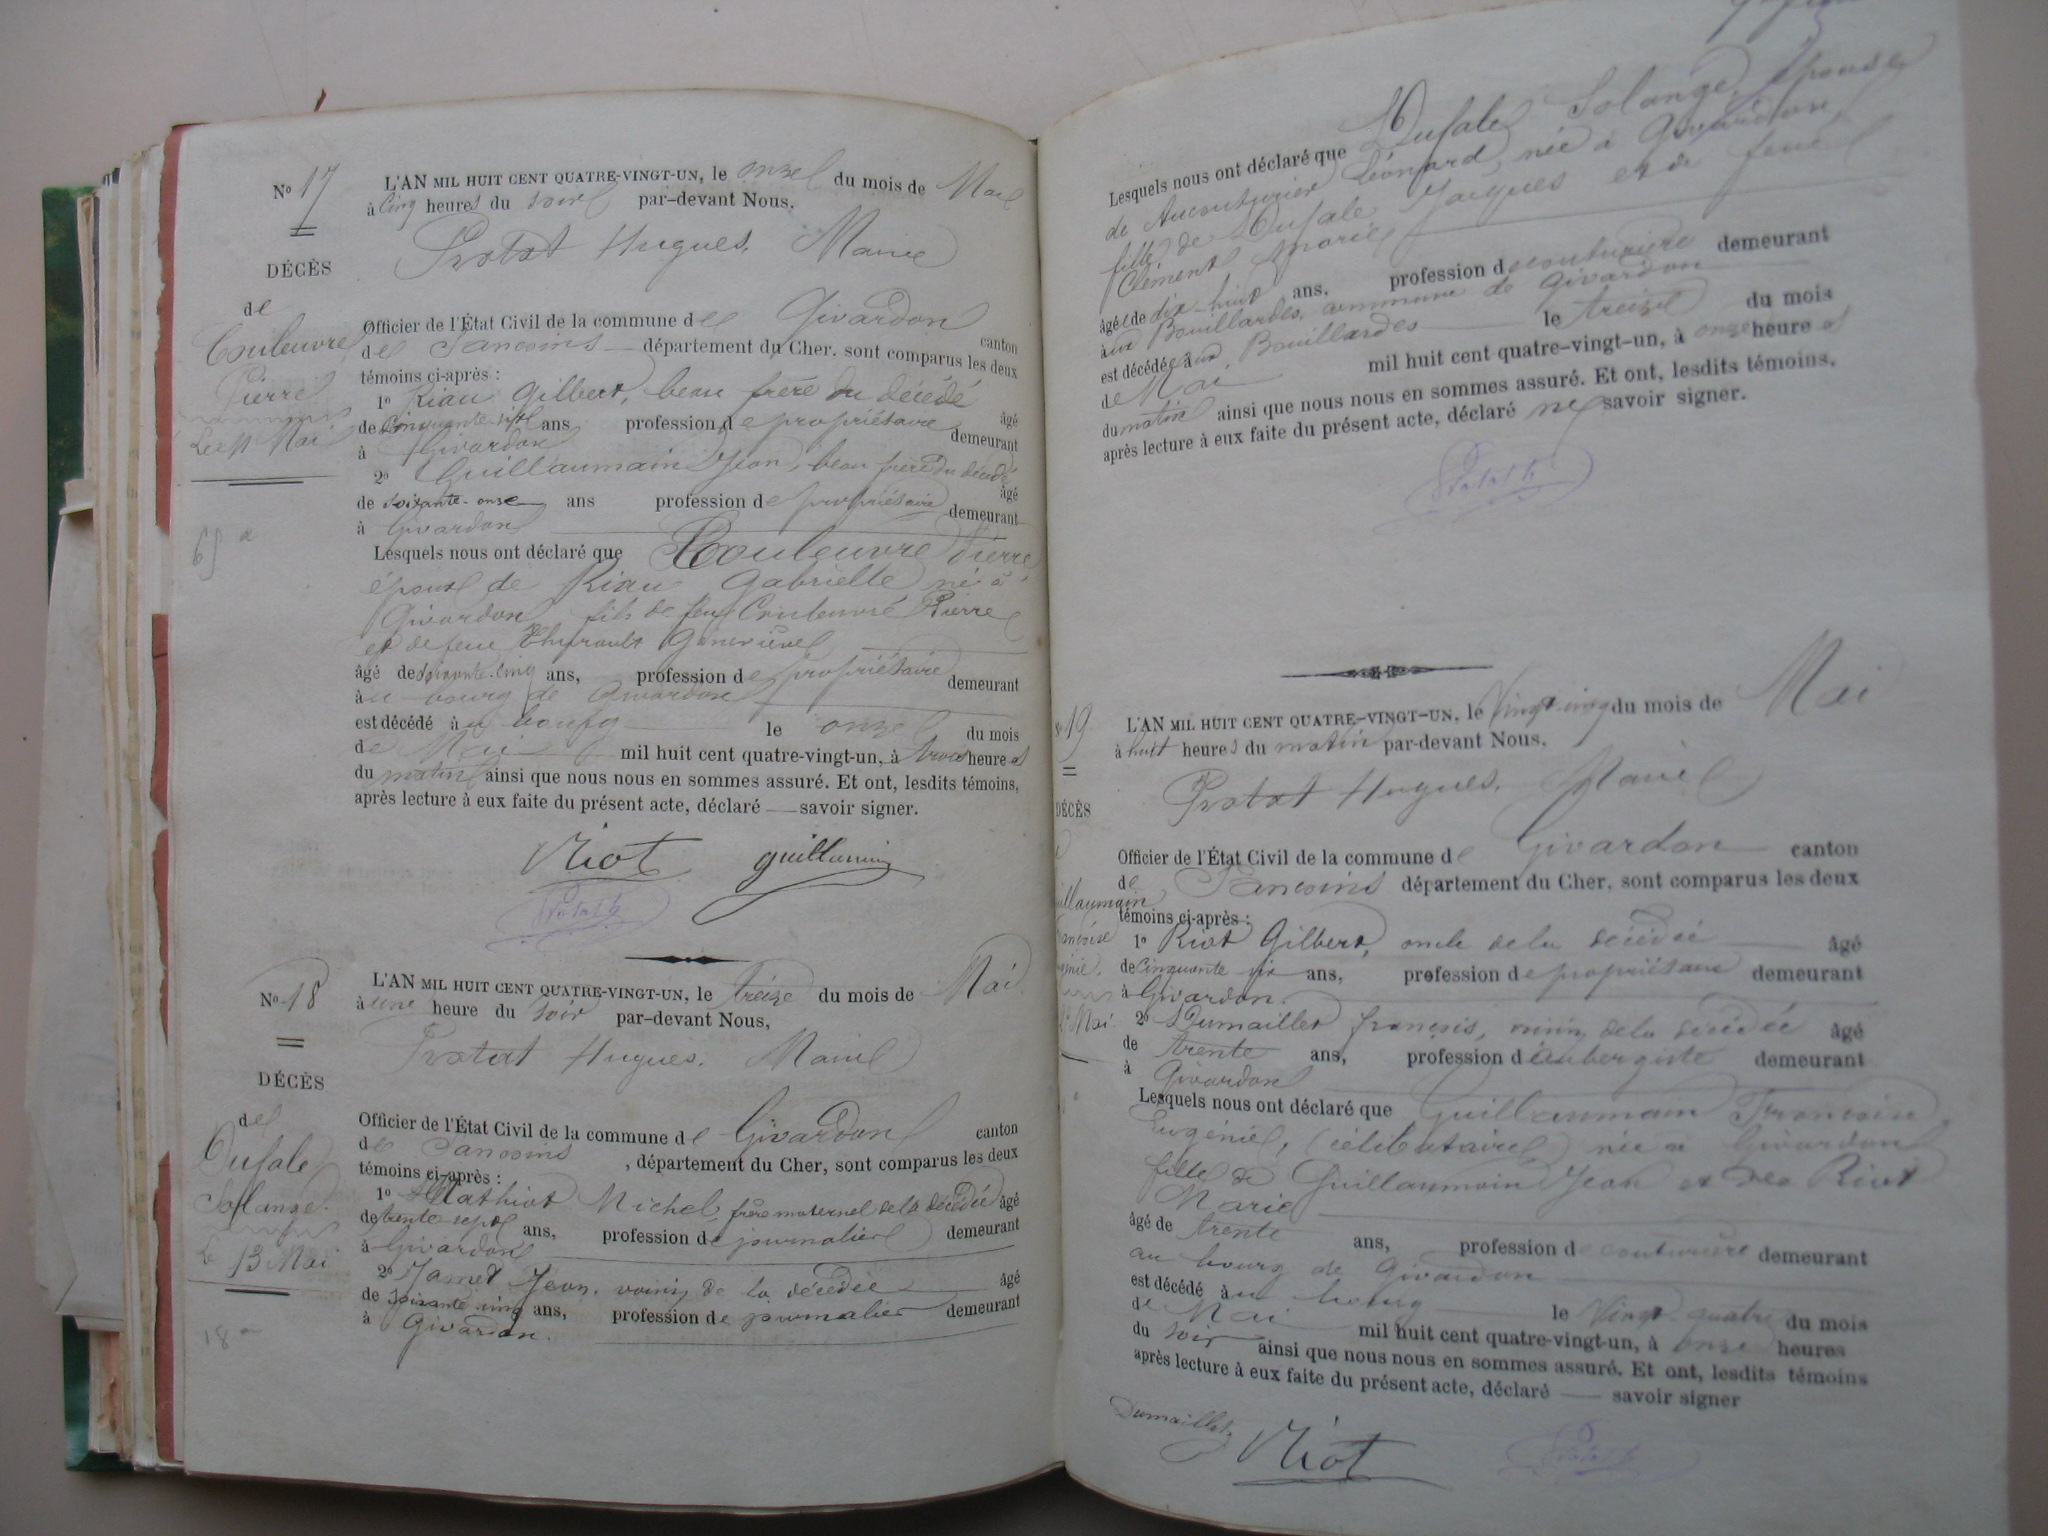 No 17
DÉCÈS
de
Couleuvre
Pierre
Le 11 Mai
65 a
L'AN MIL HUIT CENT QUATRE-VINGT-UN, le onze du mois de Mai
à Cinq heures du soir par-devant Nous,
Protat Hugues, Maire
Officier de l'État Civil de la commune de Givardon canton
de Sancoins département du Cher, sont comparus les deux
témoins ci-après :
1o Riau Gilbert, beau frère du décédé âgé
de Cinquante sept ans profession de propriétaire demeurant
à Givardon
2o Guillaumain Jean, beau frère du décédé âgé
de soixante-onze ans profession de propriétaire demeurant
à Givardon
Lesquels nous ont déclaré que Couleuvre Pierre
époux de Riau Gabrielle né à
Givardon fils de feu Couleuvre Pierre
et de feue Geneviève
âgé de soixante-cinq ans, profession de propriétaire demeurant
au bourg de Givardon
est décédé au bourg le onze du mois
de Mai mil huit cent quatre-vingt-un, à trois heures
du matin ainsi que nous nous en sommes assuré. Et ont, lesdits témoins,
après lecture à eux faite du présent acte, déclaré — savoir signer.
Riot guillaumin
Protat h
No 18
DÉCÈS
de
Dufale
Solange
Le 13 Mai
18 a
L'AN MIL HUIT CENT QUATRE-VINGT-UN, le treize du mois de Mai
à une heure du soir par-devant Nous,
Protat Hugues, Maire
Officier de l'État Civil de la commune de Givardon canton
de Sancoins, département du Cher, sont comparus les deux
témoins ci-après :
1o Mathiot Michel, frère maternel de la décédée âgé
de trente sept ans, profession de journalier demeurant
à Givardon
2o Jamet Jean, voisin de la décédée âgé
de soixante cinq ans, profession de journalier demeurant
à Givardon.
Lesquels nous ont déclaré que Dufale Solange, épouse
de Aucouturier Léonard, née à Givardon,
fille de Dufale Jacques et de feue
Clément Marie
âgée de dix-huit ans, profession de couturière demeurant
aux Bouillardes, commune de Givardon
est décédée aux Bouillardes le treize du mois
de Mai mil huit cent quatre-vingt-un, à onze heures
du matin ainsi que nous nous en sommes assuré. Et ont, lesdits témoins,
après lecture à eux faite du présent acte, déclaré ne savoir signer.
Protat h
No 19
DÉCÈS
illaumain
ancoise
génie.
Mai
L'AN MIL HUIT CENT QUATRE-VINGT-UN, le Vingt-cinq du mois de Mai
à huit heures du matin par-devant Nous,
Protat Hugues, Maire
Officier de l'État Civil de la commune de Givardon canton
de Sancoins département du Cher, sont comparus les deux
témoins ci-après :
1o Riot Gilbert, oncle de la décédée âgé
de Cinquante six ans, profession de propriétaire demeurant
à Givardon.
2o Dumaillet françois, voisin de la décédée âgé
de trente ans, profession d'aubergiste demeurant
à Givardon
Lesquels nous ont déclaré que Guillaumain Francoise
Eugénie, (célibataire) née à Givardon
fille de Guillaumain Jean et de Riot
Marie
âgé de trente ans, profession de couturière demeurant
au bourg de Givardon
est décédé au bourg le Vingt quatre du mois
de Mai mil huit cent quatre-vingt-un, à onze heures
du soir ainsi que nous nous en sommes assuré. Et ont, lesdits témoins
après lecture à eux faite du présent acte, déclaré — savoir signer
Dumaillet Riot Protat h